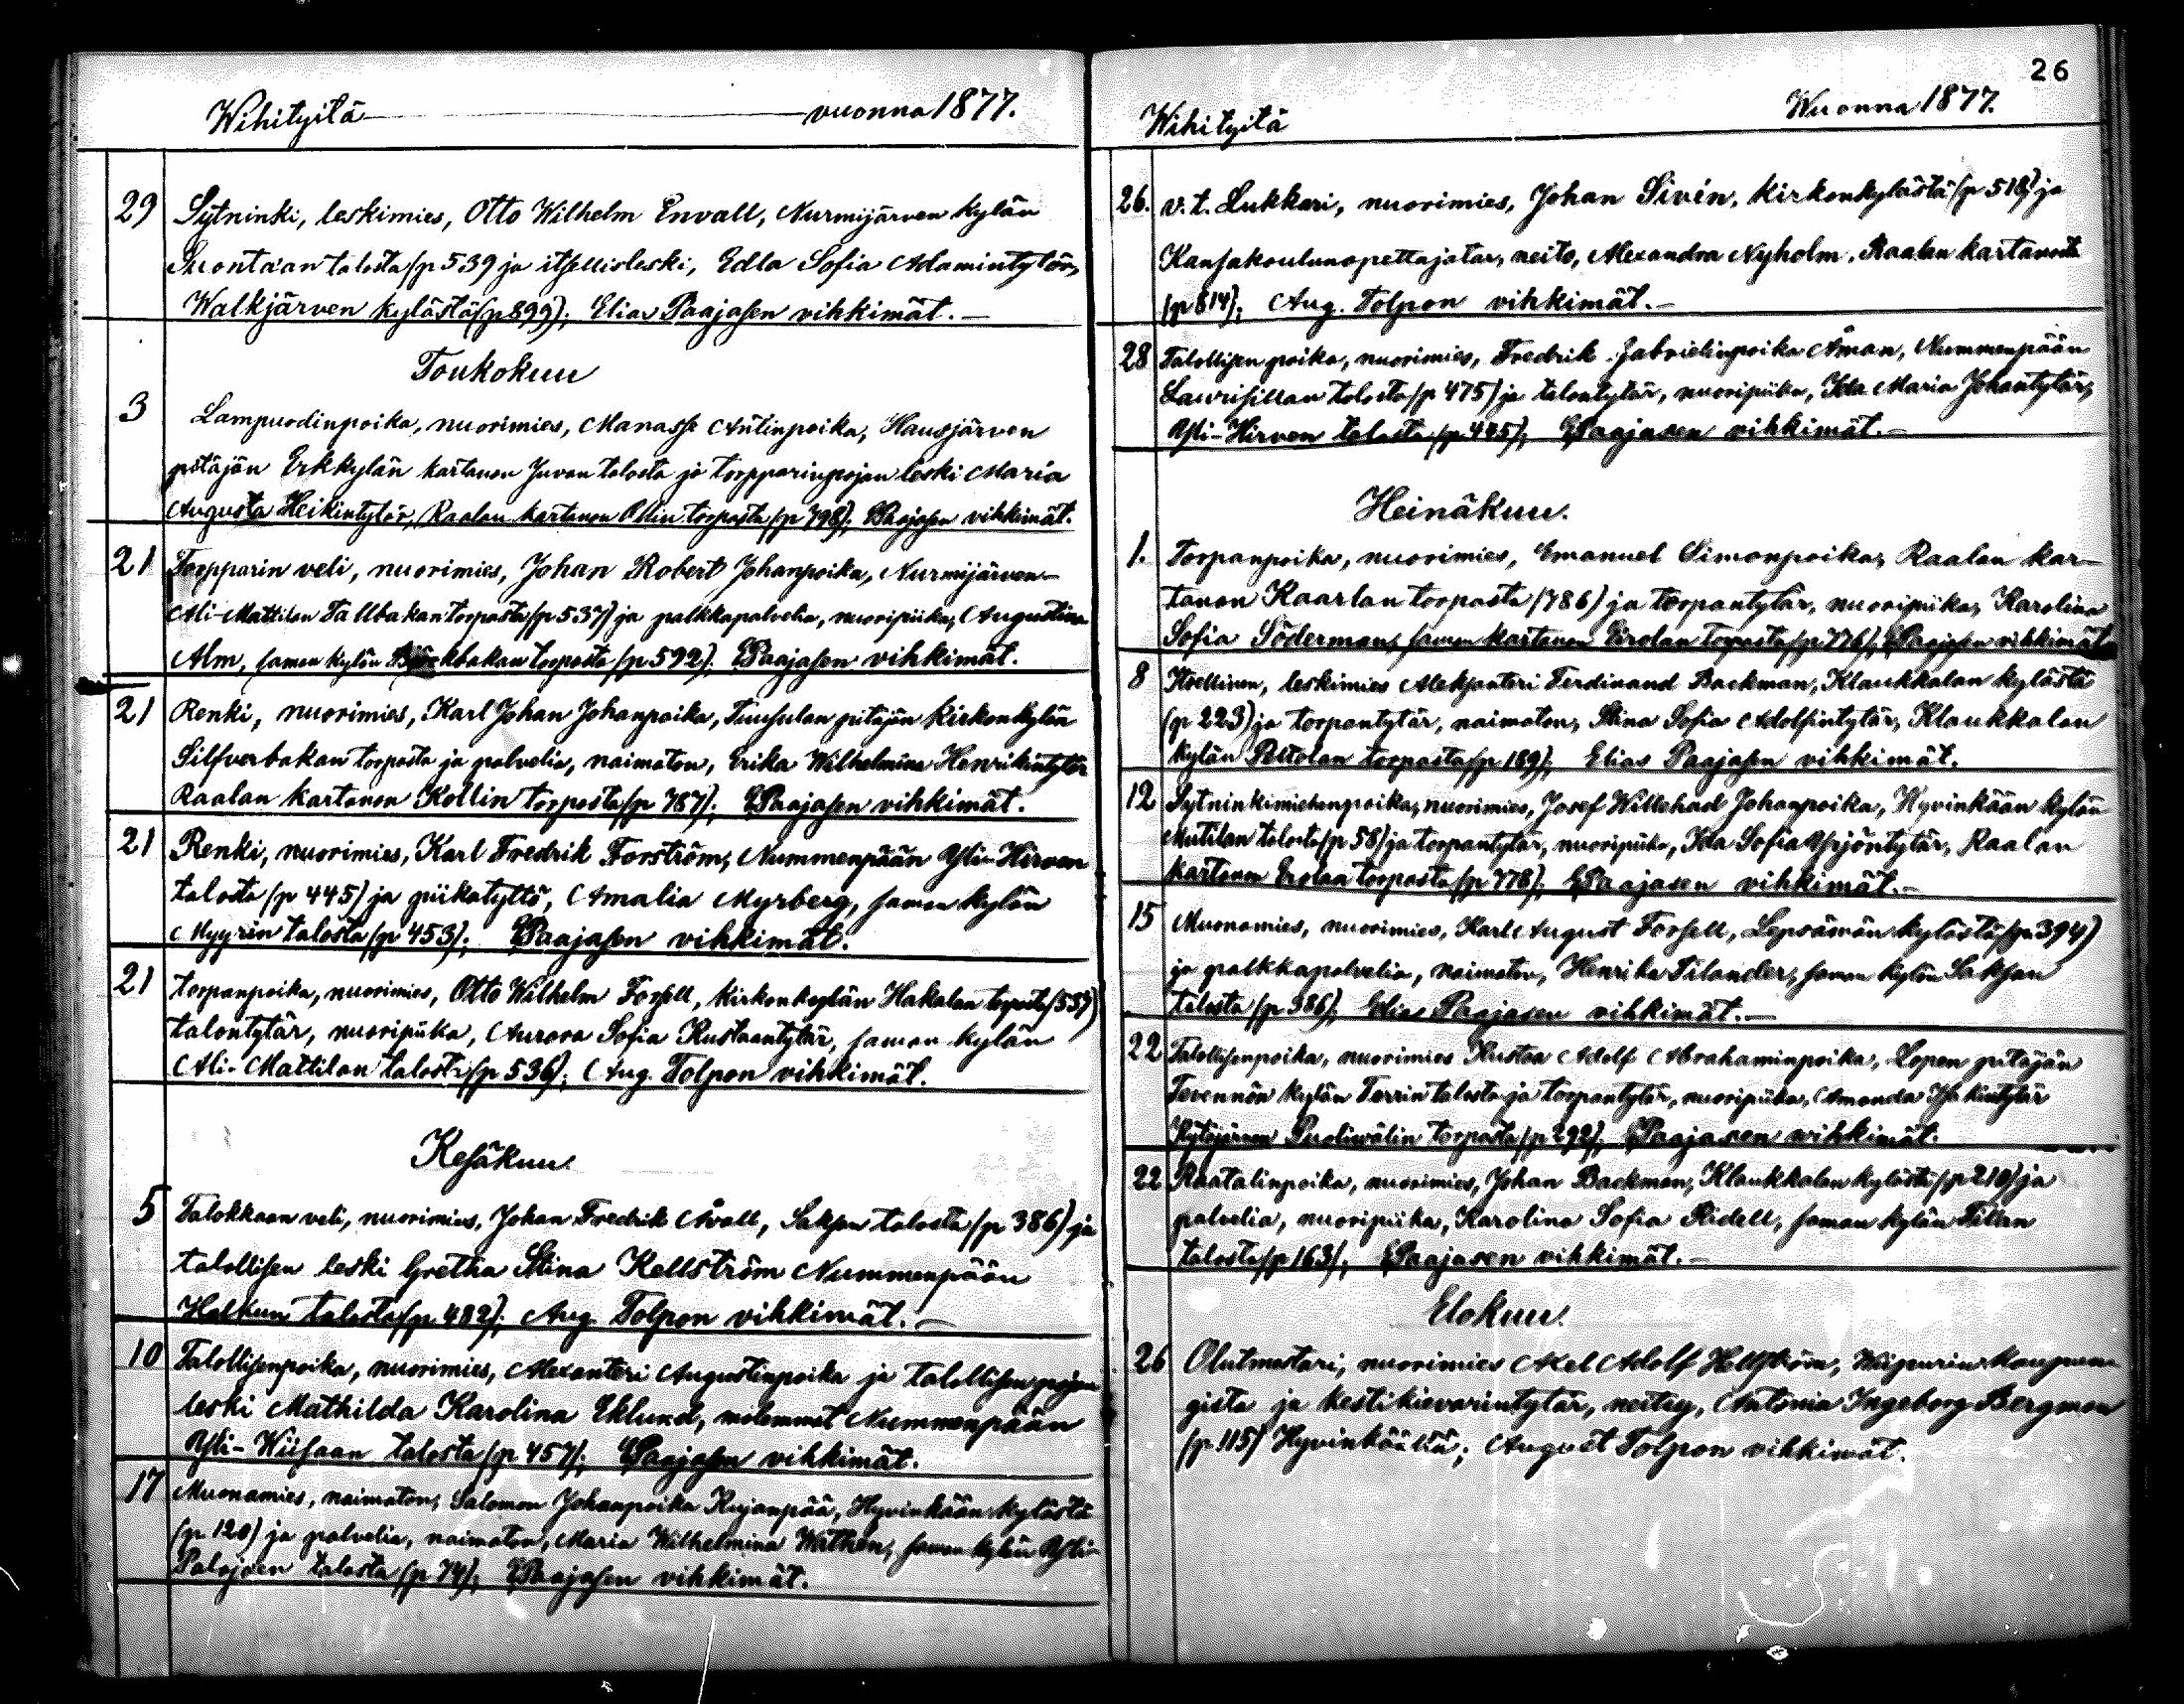 Wihityitä vuonna 1877.
29 Sytninki, leskimies, Otto Wilhelm Envall, Nurmijärven kylän
Suontaan talosta (p 539 ja itsellisleski, Edla Sofia Adamintytön,
Walkjärven kylästä (p 899); Elias Paajasen vihkimät. —
Toukokuu
3 Lampuodinpoika, nuorimies, Manasse Antinpoika, Hausjärven
pitäjän Erkkylän kartanon Juvan talosta ja torpparinpojan leski Maria
Augusta Heikintytär, Raalan kartanon Ollin torpasta (p 798); EPaajasen vihkimät.
21 Torpparin veli, nuorimies, Johan Robert Johanpoika, Nurmijärven
Ali-Mattilan Tallbakan torpasta (p 537) ja palkkapalvelia, nuoripiika, Augustina
Alm, saman kylän torpasta (p 592); EPaajasen vihkimät.
21 Renki, nuorimies, Karl Johan Johanpoika, Tuusulan pitäjän kirkonkylän
Silfverbakan torpasta ja palvelia, naimaton, Erika Wilhelmina Henrikintytär
Raalan kartanon Kollin torpasta (p 787); EPaajasen vihkimät.
21 Renki, nuorimies, Karl Fredrik Forström, Nummenpään Yli-Hirven
talosta (p 445) ja piikatyttö, Amalia Myrberg, saman kylän
Myyrin talosta (p 453); EPaajasen vihkimät.
21 torpanpoika, nuorimies, Otto Wilhelm Forsell, kirkonkylän Hakalan
talontytär, nuoripiika, Aurora Sofia Kustaantytär, saman kylän
Ali-Mattilan talosta (p 536); Aug. Tolpon vihkimät.
Kesäkuu.
5 Talokkaan veli, nuorimies, Johan Fredrik Åvall, Saksan talosta (p 386) ja
talollisen leski Gretha Stina Kellström Nummenpään
Holkun talosta (p 482); Aug. Tolpon vihkimät. —
10 Talollisenpoika, nuorimies, Alexanteri Augustinpoika ja talollisen pojan
leski Mathilda Karolina Eklund, molemmat Nummenpään
Yli-Wiisaan talosta (p 457); EPaajasen vihkimät.
17 Muonamies, naimaton, Salomon Johanpoika Kujanpää, Hyvinkään kylästä
(p 120) ja palvelia, naimaton, Maria Wilhelmina Wathén, saman kylän Yli-
Palojoen talosta (p 74); EPaajasen vihkimät.
26
Wihityitä Wuonna 1877.
26. v.t. Lukkari, nuorimies, Johan Sivén, kirkonkylästä (p 518) ja
Kansakoulunopettajatar, neito, Alexandra Nyholm, Raalan kartanosta
(p 814); Aug. Tolpon vihkimät. —
28 Talollisen poika, nuorimies, Fredrik Gabrielinpoika Åman, Nummenpään
Laurisillan talosta (p 475) ja talontytär, nuoripiika, Ida Maria Johantytär,
Yli-Hirven talosta (p 445); EPaajasen vihkimät. —
Heinäkuu.
1. Torpanpoika, nuorimies, Emanuel Simonpoika, Raalan kar-
tanon Kaarlan torpasta (786) ja torpantytär, nuoripiika, Karolina
Sofia Söderman, saman kartanon Eerolan torpasta (p 776); EPaajasen vihkimät
8 Itsellinen, leskimies Aleksanteri Ferdinand Backman, Klaukkalan kylästä
(p 223) ja torpantytär, naimaton, Stina Sofia Adolfintytär, Klaukkalan
kylän Peltolan torpasta (p 189); Elias Paajasen vihkimät.
12 Sytninkimiehenpoika, nuorimies, Josef Willehad Johanpoika, Hyvinkään kylän
Mutilan talosta (p 58) ja torpantytär, nuoripiika, Ida Sofia Yrjöntytär, Raalan
kartanon Erolan torpasta (p 778); EPaajasen vihkimät. —
15 Muonamies, nuorimies, Karl August Forsell, Lepsämän kylästä (p 394)
ja palkkapalvelia, naimaton, Henrika Silander, saman kylän Saksan
talosta (p 386); Elias Paajasen vihkimät. —
22 Talollisenpoika, nuorimies Kustaa Adolf Abrahaminpoika, Lopen pitäjän
Tevennön kylän Terrin talosta ja torpantytär, nuoripiika, Amanda
Kytäjärven Puolivälin torpasta (p 292); EPaajasen vihkimät.
22 Räätalinpoika, nuorimies, Johan Backman, Klaukkalan kylästä (p 210) ja
palvelia, nuoripiika, Karolina Sofia Ridell, saman kylän Tillan
talosta (p 163); EPaajasen vihkimät. —
Elokuu.
26 Olutmestari, nuorimies Axel Adolf Hellström, Wiipurin kaupun-
gista ja kestikievarintytär, neitsy, Antonia Ingeborg Bergman
(p 115) Hyvinkäältä; August Tolpon vihkimät.